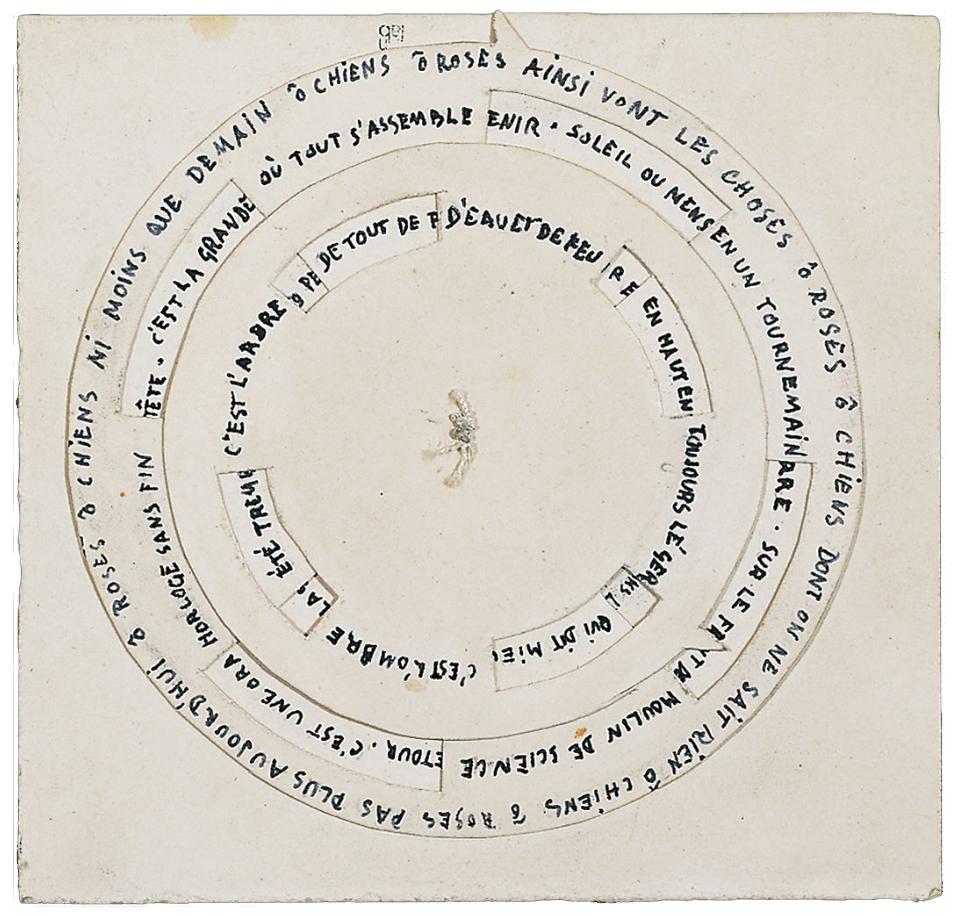 ô CHiENS ô ROSES AiNSi VONT LES CHOSES ô ROSES ô CHiENS DONT ON NE SAiT RiEN ô CHiENS ô ROSES PAS PLUS AUJOURD'HUi ô ROSES ô CHiENS Ni MOiNS QUE DEMAiN
OÙ TOUT S'ASSEMBLE ENIR . SOLEIL OU MENS EN UN TOURNEMAiN ARE . SUR LE FR NT DE MOULIN DE SCiENCE ETOUR . C'EST UNE ORA HORLOGE SANS FIN TÊTE . C'EST LA GRANDE
DE TOUT DE P D'EAU ET DE FEU RE EN HAUT EN TOUJOURS LÉGER NS L QUi DiT MiE C'EST L'OMBRE LAS ÉTÉ TREM C'EST L'ARBRE D PE